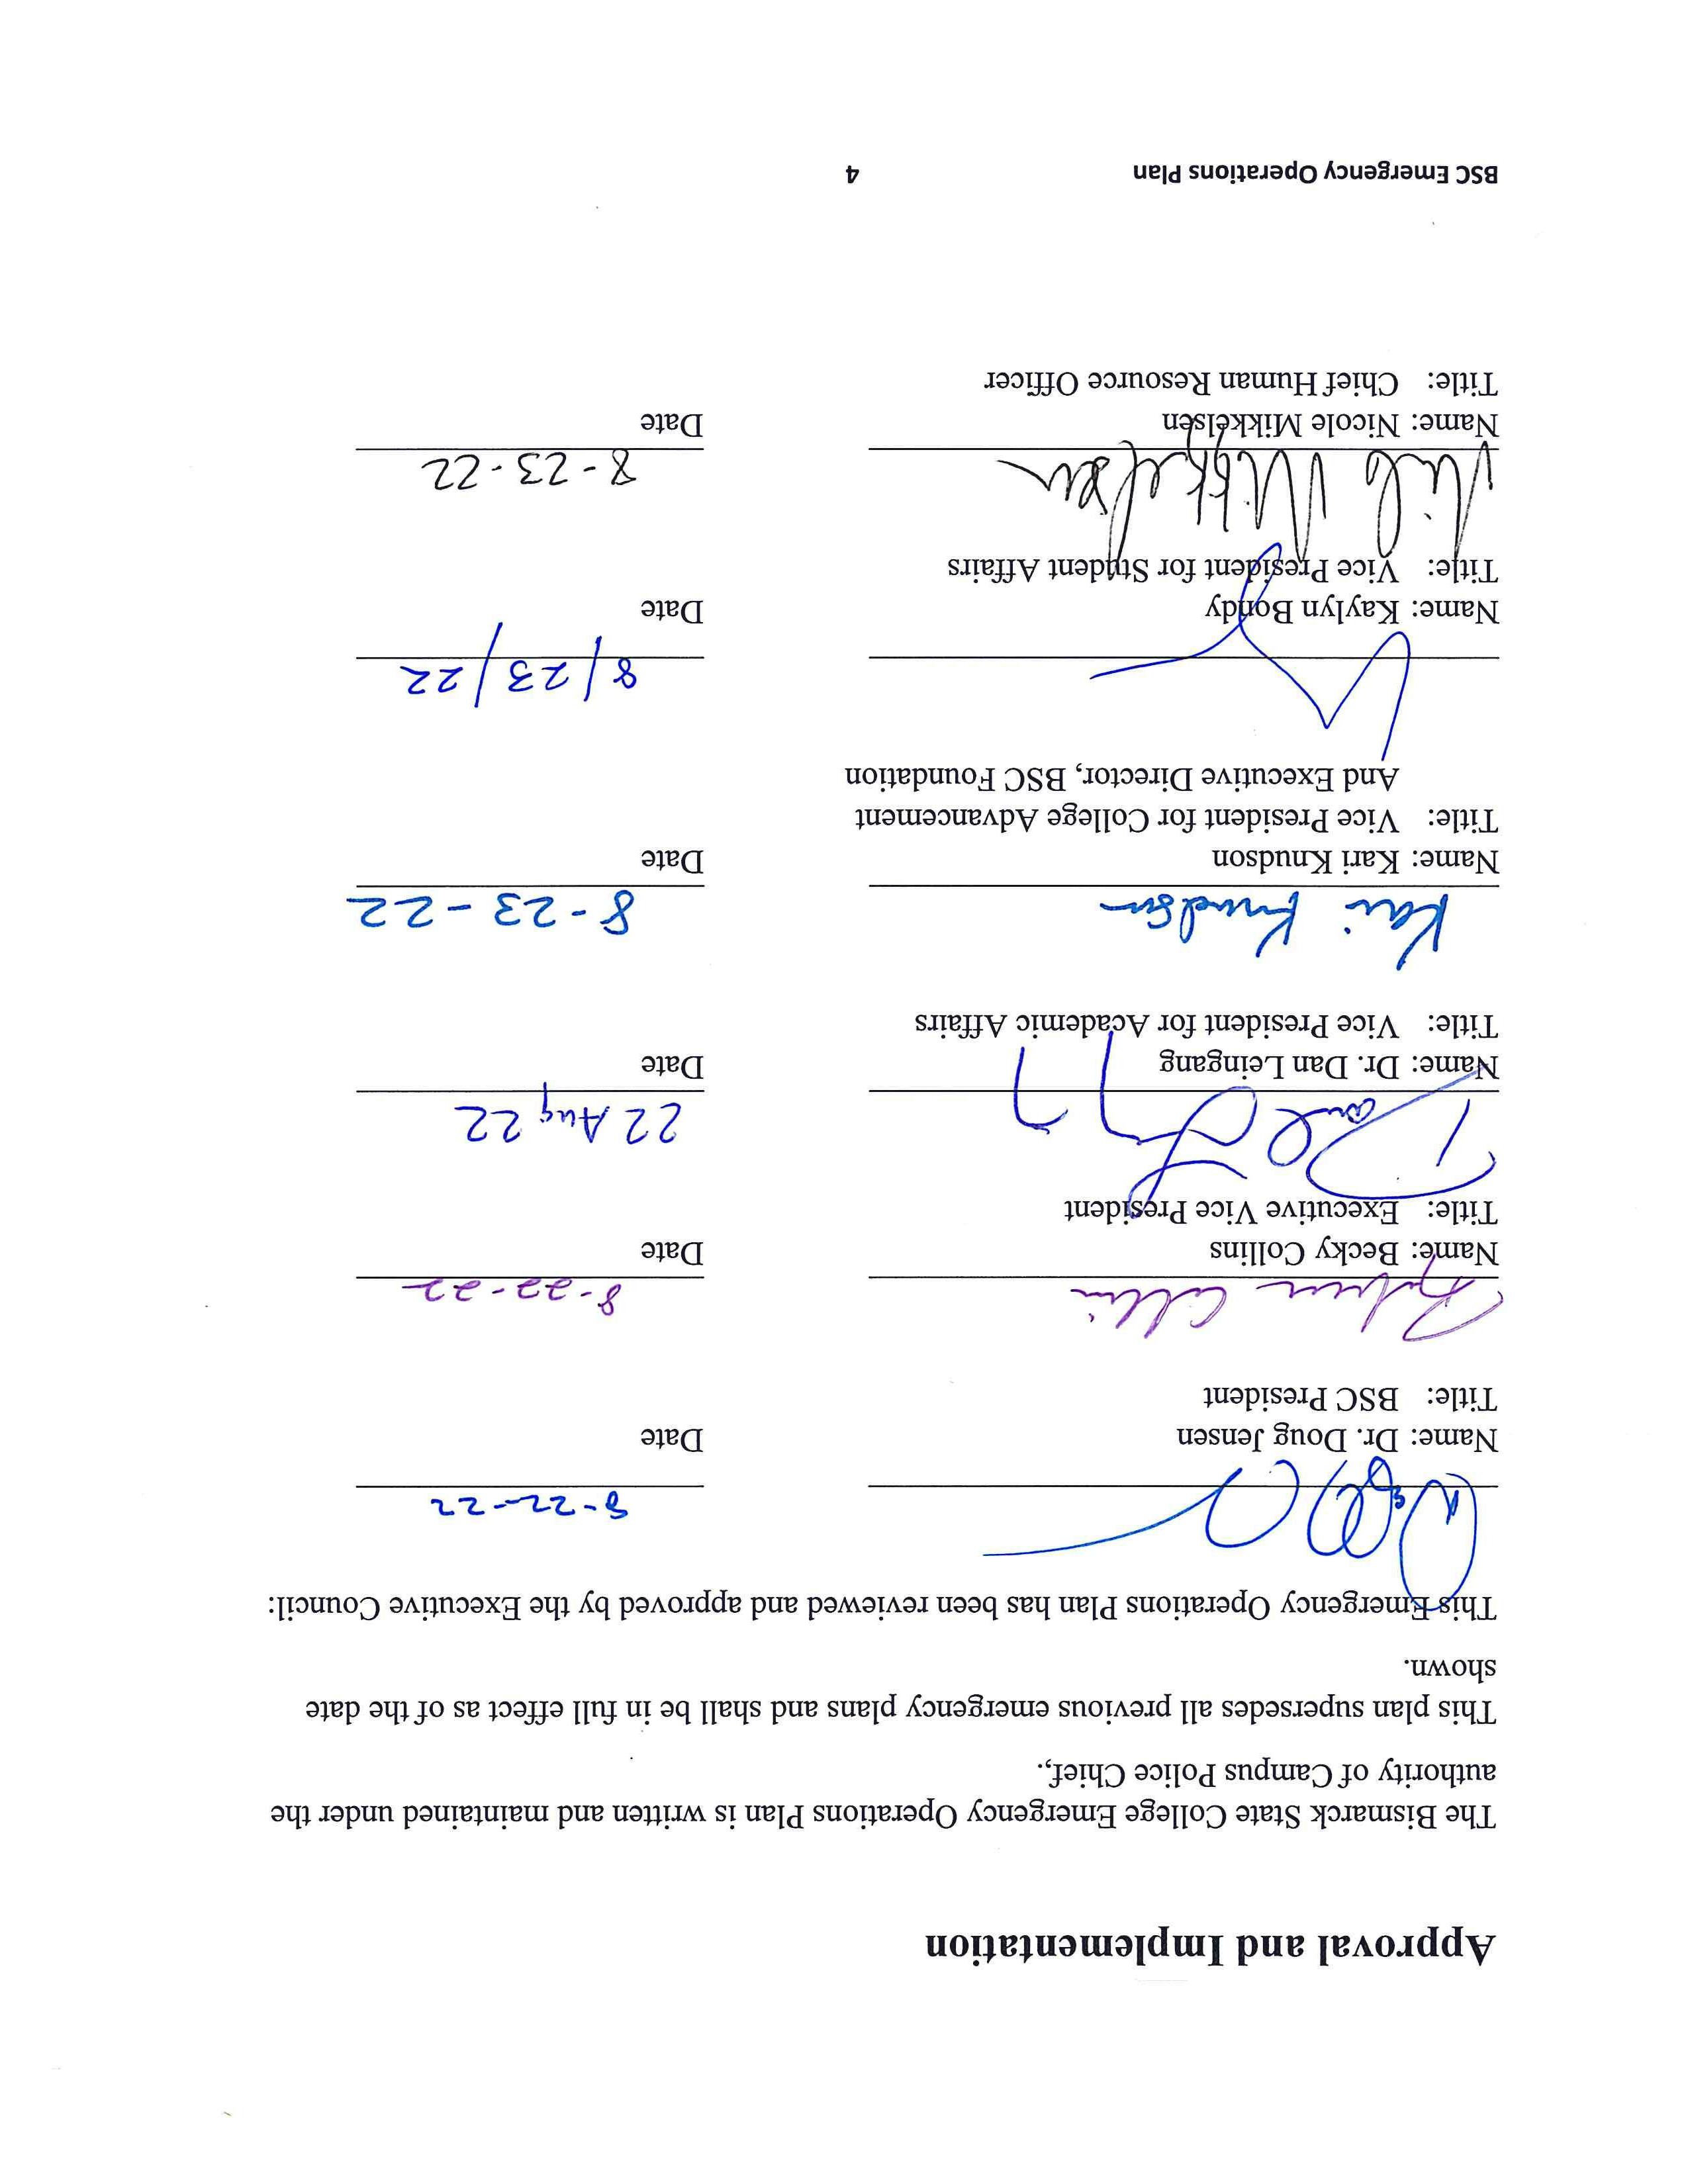 Approval and Implementation
The Bismarck State College Emergency Operations Plan is written and maintained under the
authority of Campus Police Chief,.
This plan supersedes all previous emergency plans and shall be in full effect as of the date
shown.
This Emergency Operations Plan has been reviewed and approved by the Executive Council:
8-22-22
Name: Dr. Doug Jensen Date
Title: BSC President
8-22-22
Name: Becky Collins Date
Title: Executive Vice President
22 Aug 22
Name: Dr. Dan Leingang Date
Title: Vice President for Academic Affairs
Kari Knudson 8-23-22
Name: Kari Knudson Date
Title: Vice President for College Advancement
And Executive Director, BSC Foundation
8/23/22
Name: Kaylyn Bondy Date
Title: Vice President for Student Affairs
Nicole Mikkelsen 8-23-22
Name: Nicole Mikkelsen Date
Title: Chief Human Resource Officer
BSC Emergency Operations Plan 4